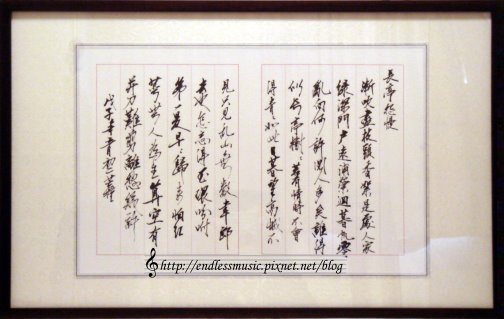 長亭怨慢
漸吹盡枝頭香絮是處人家
綠深門戶遠浦縈迴暮帆零
亂向何許閱人多矣誰得
似長亭樹樹若有情時不會
得青青如此日暮望高城不
見只見亂山無數韋郎
去也怎忘得玉環分付
第一是早歸來怕紅
萼無人為主算空有
并刀難剪離愁千縷
戊子年
http://endlessmusic.pixnet.net/blog